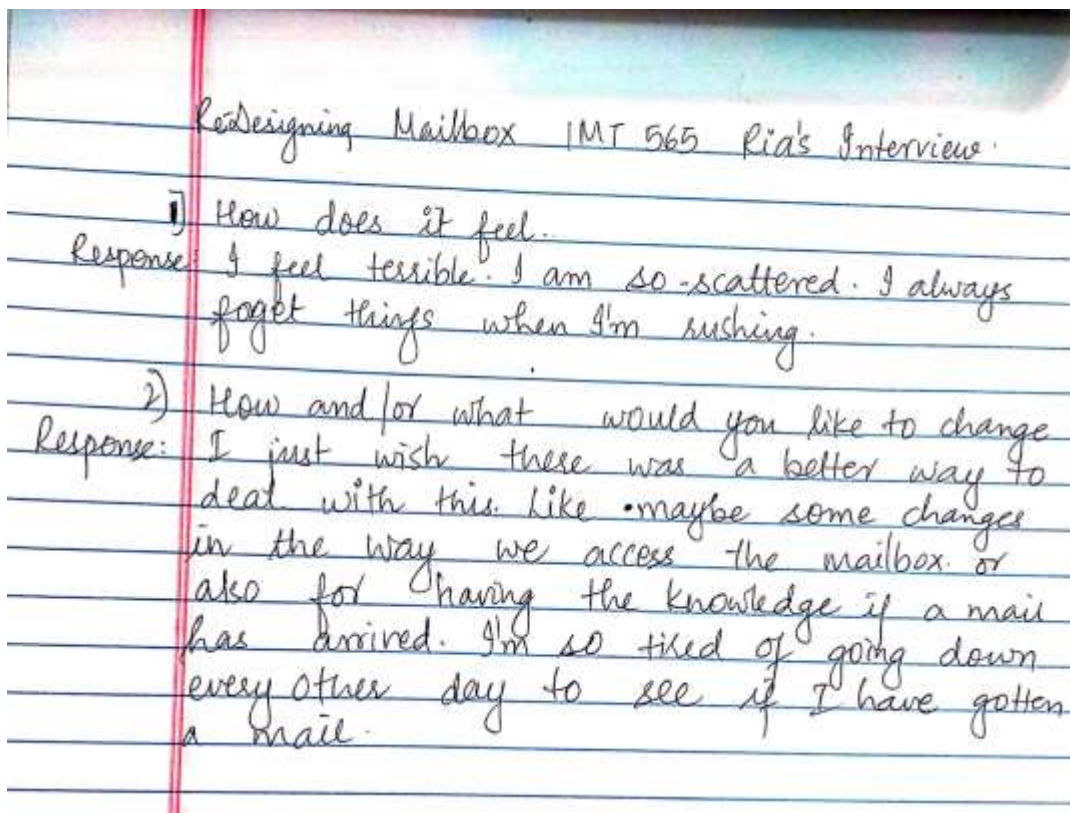 ReDesigning Mailbox IMT 565 Ria's Interview.
1) How does it feel..
Response: I feel terrible. I am so-scattered. I always
foget things when I'm rushing.
2) How and/or what would you like to change
Response: I just wish there was a better way to
deal with this. Like maybe some changes
in the way we access the mailbox. or
also for having the knowledge if a mail
has arrived. I'm so tired of going down
every other day to see if I have gotten
a mail.